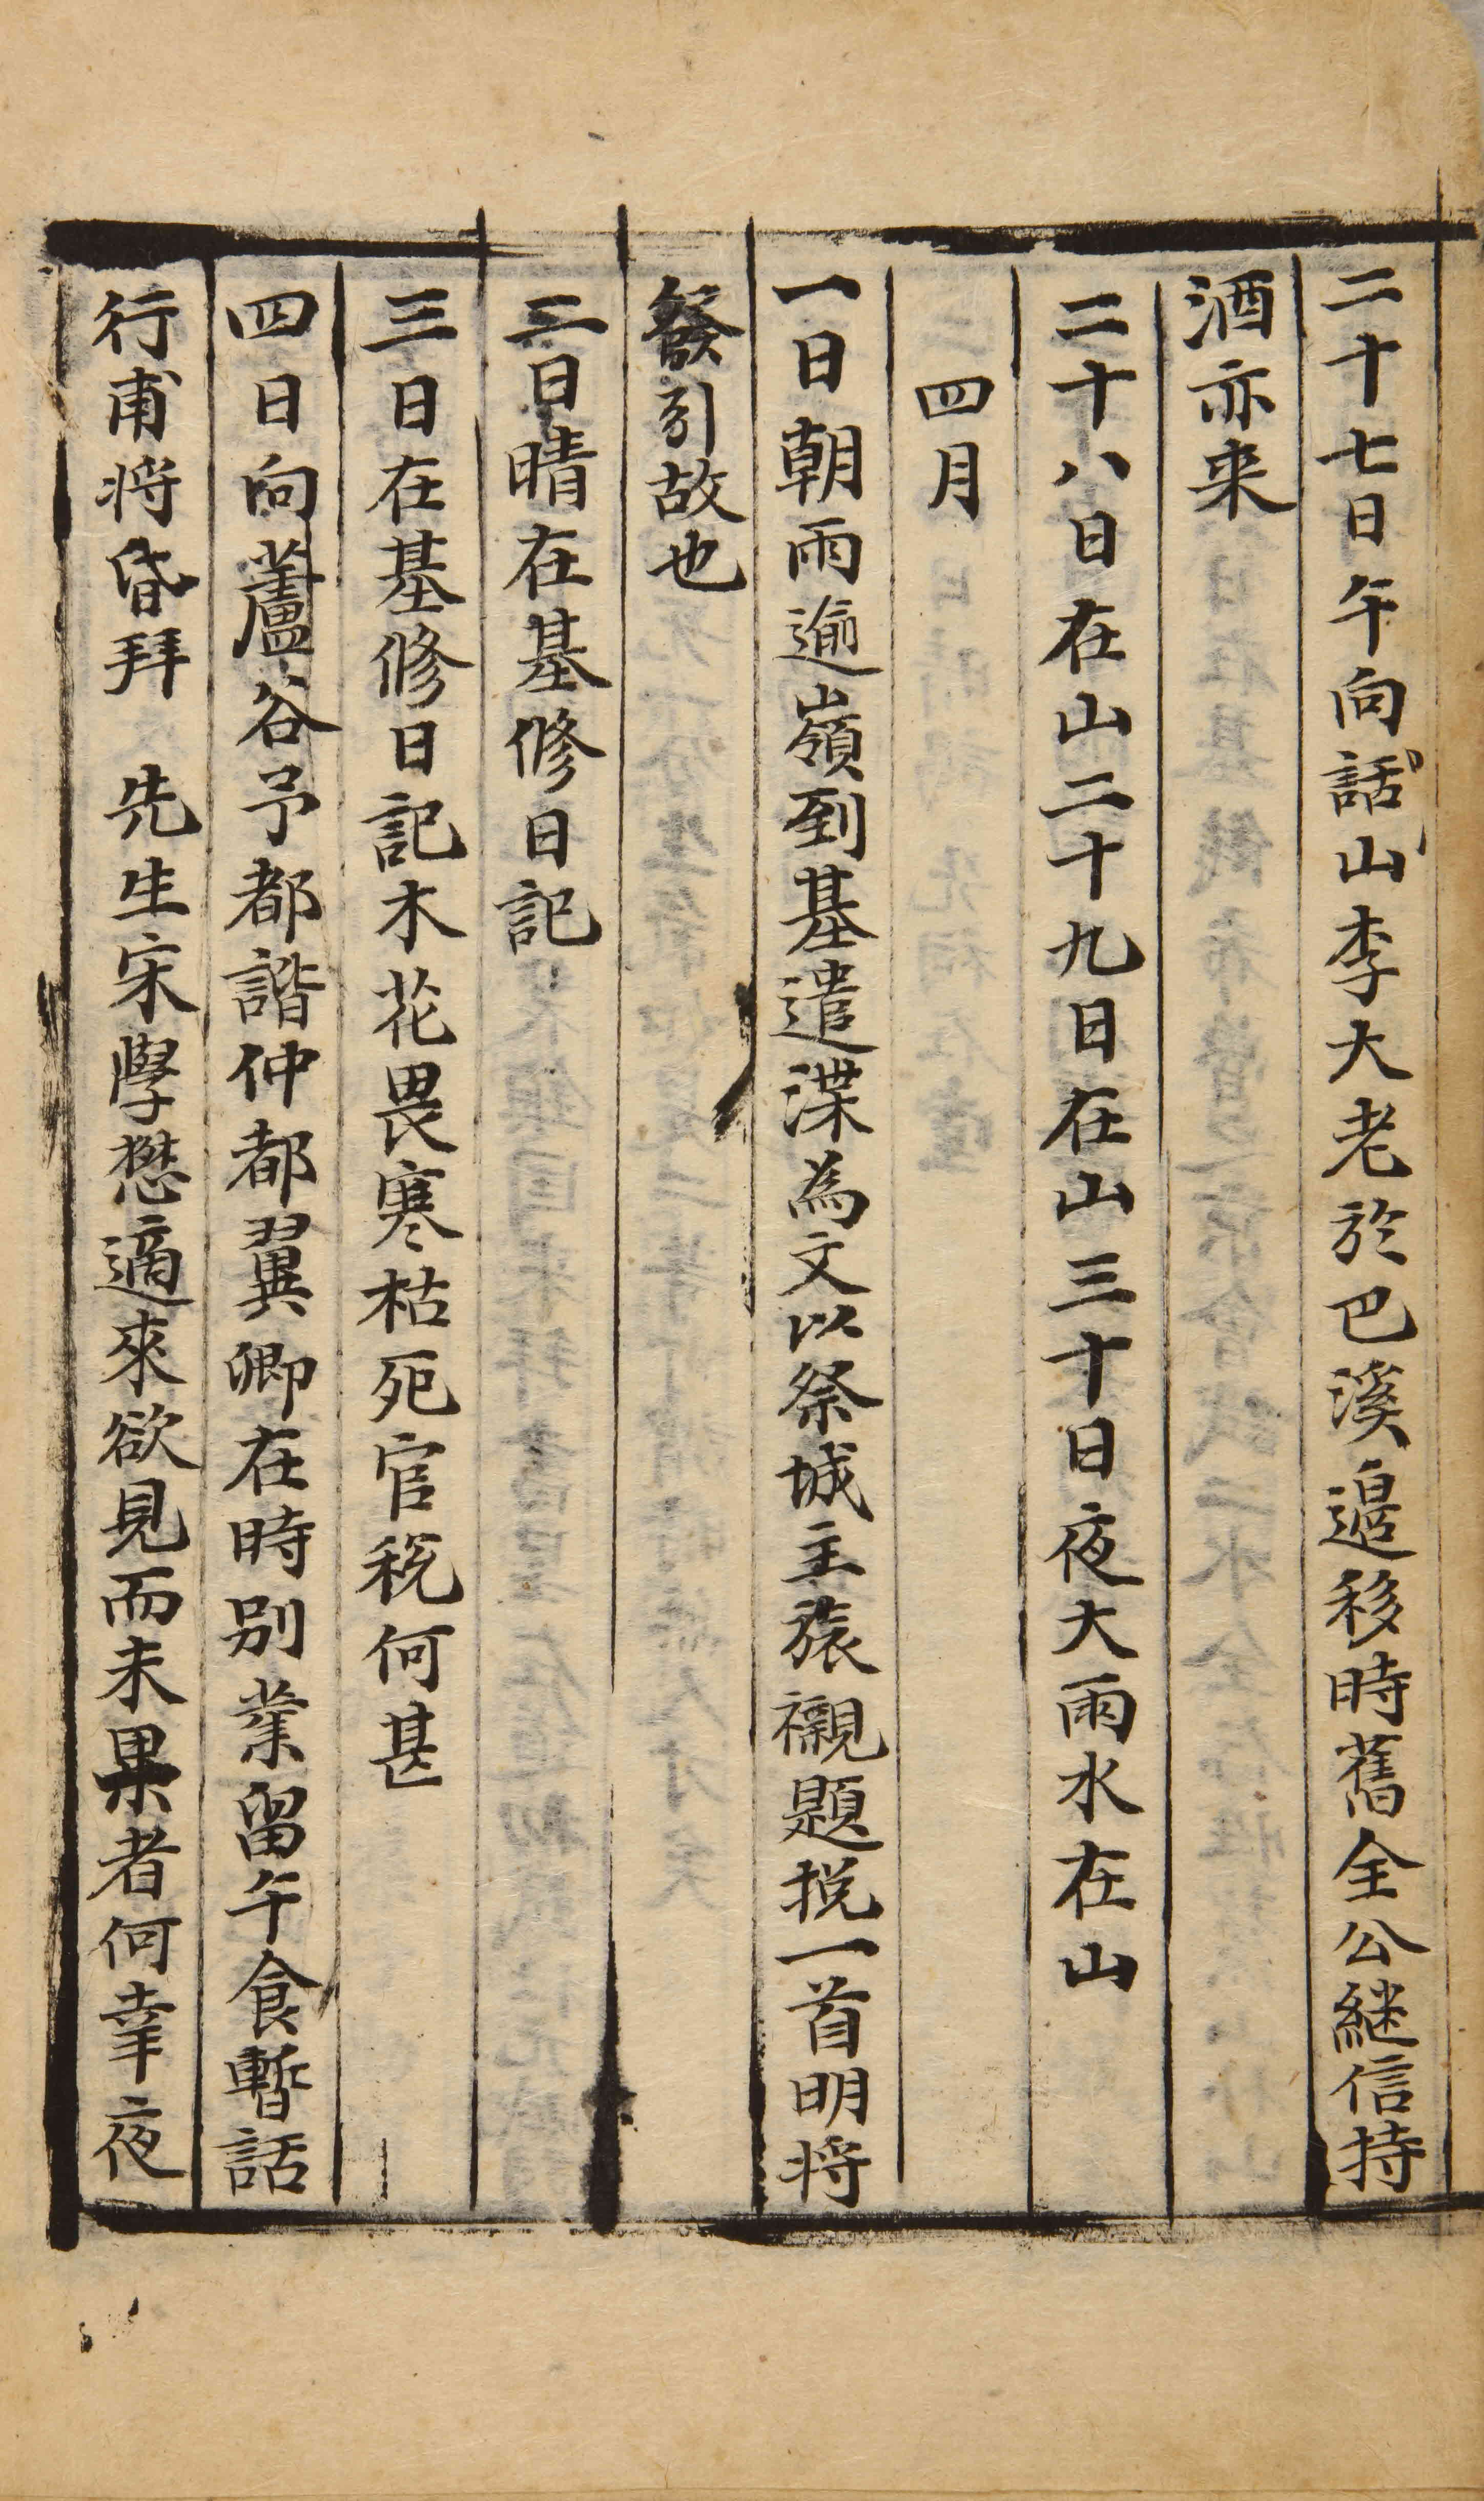 二十七日午向話山李大老於巴溪邉移時舊全公継信持
酒亦来
二十八日在山二十九日在山三十日夜大雨水在山
四月
一日朝雨逾嶺到基遣渫為文以祭城主旅櫬題挽一首明将
發引故也
二日晴在基修日記
三日在基修日記木花畏寒枯死官税何甚
四日向蘆谷予都諧仲都翼卿在時别業留午食暫話
行甫将昏拜 先生宋學懋適來欲見而未果者何幸夜